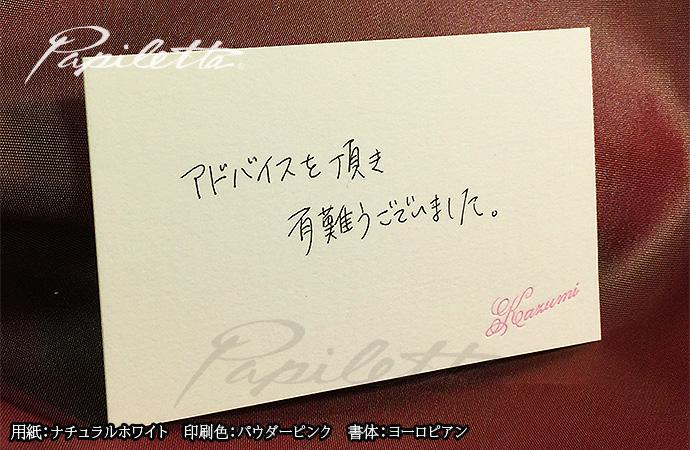 Papiletta
アドバイスを頂き
有難うございました。
Kazumi
Papiletta
用紙:ナチュラルホワイト 印刷色:パウダーピンク 書体:ヨーロピアン